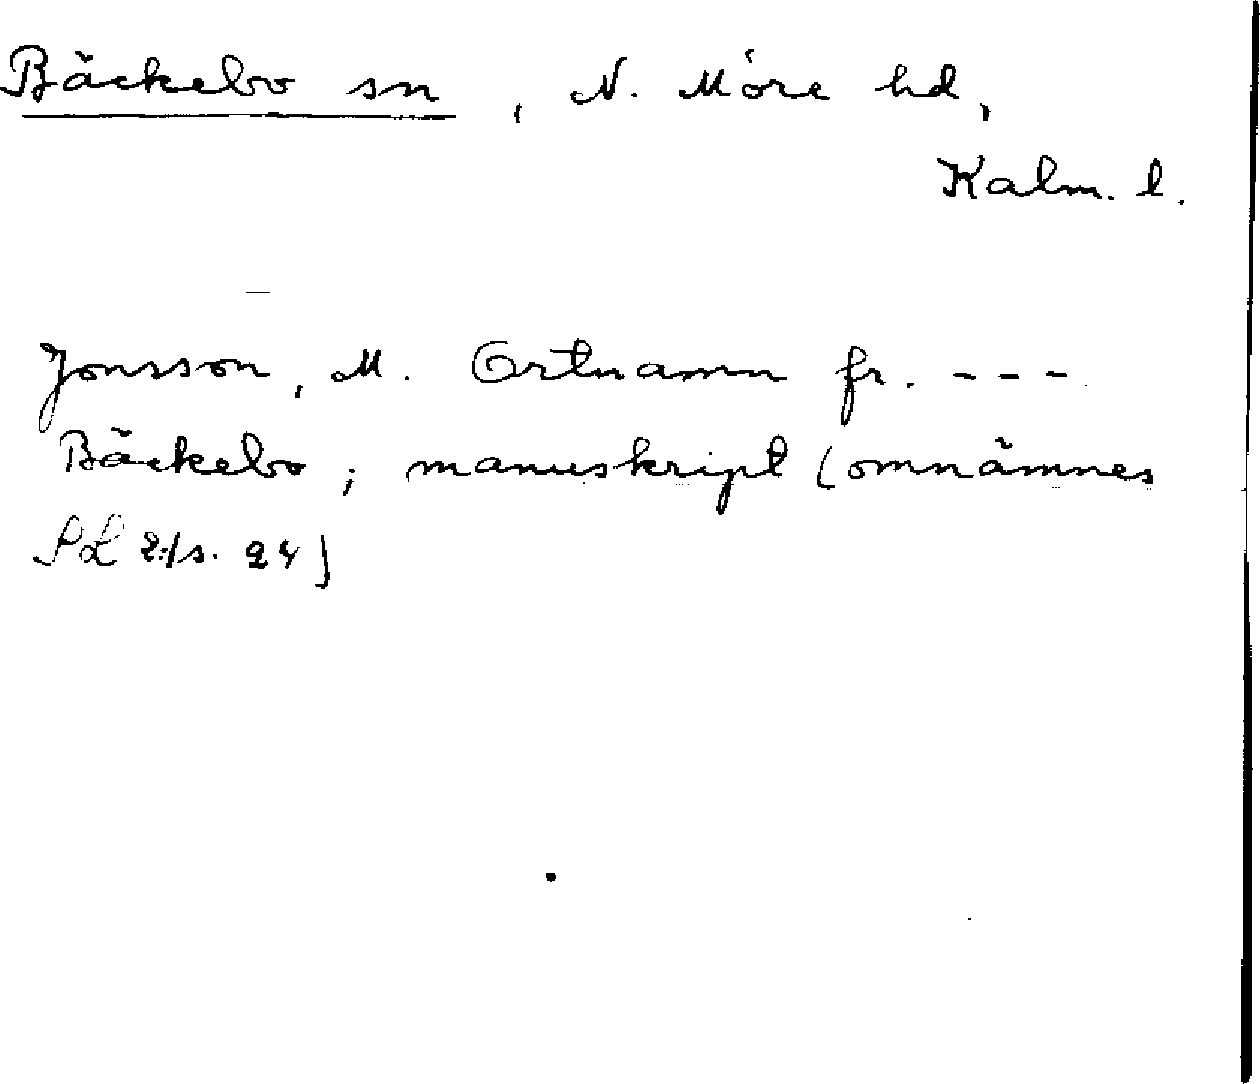 Bäckebo sn, N. Möre hd,
Kalm. l.
Jonsson, M. Ortnamn fr. ---
Bäckebo; manuskript (omnämnes
SL 2:1 s. 24)